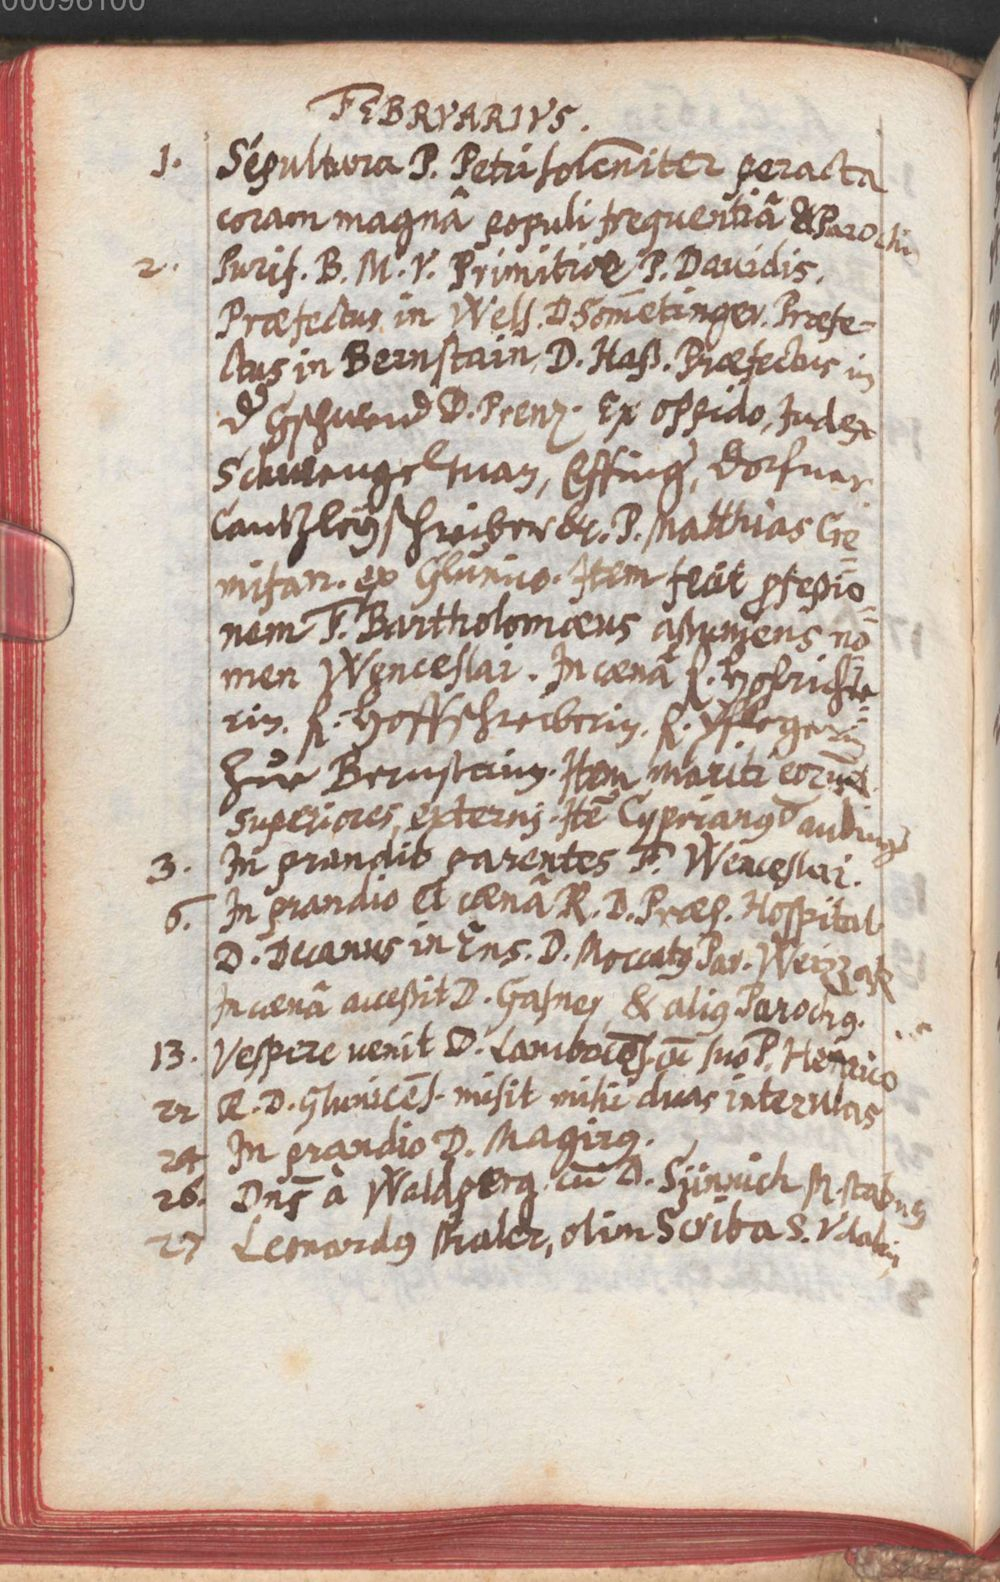 00096100
FEBRVARIVS.
1. Sepultura P. Petri solen̄iter peracta
coram magnâ populi frequentiâ & Parochis
2. Purif. B. M. V. Primitiæ P. Dauidis.
Præfectus in Wels. D. Som̄etinger. Præfe=
ctus in Bernstain, D. Haß. Præfectus in
d' Gschwend D. Prenz. Ex oppido, Judex
Cantzleyschreiber &c. P. Matthias Ge=
misan. ex Glunico. Item fecit pfeßio=
nem F. Bartholomæus assumens no=
men Wenceslai. In cænâ f. Hofrichte=
rin. f. Hoffschreiberin. f. Pflegerin
Zue Bernstain. Item mariti eorund.
superiores, externi. Itē Cyprianus
3. In prandio parentes F. Wenceslai.
6. In prandio et cænâ R. D. Præp. Hospital.
D. Decanus in Ens. D. Moccatus Par.
In cænâ acceßit D. Gasner & alius Parochus.
13. Vespere uenit D. Lambacēs. cū suo P. Henrico
22 R. D. Glunicēs. misit mihi duas interulas
24 In prandio D. Magirus.
26. Dn̄s à Waldperg. cū D.
27 Leonardus Thaler, olim Scriba S. Vdalrici